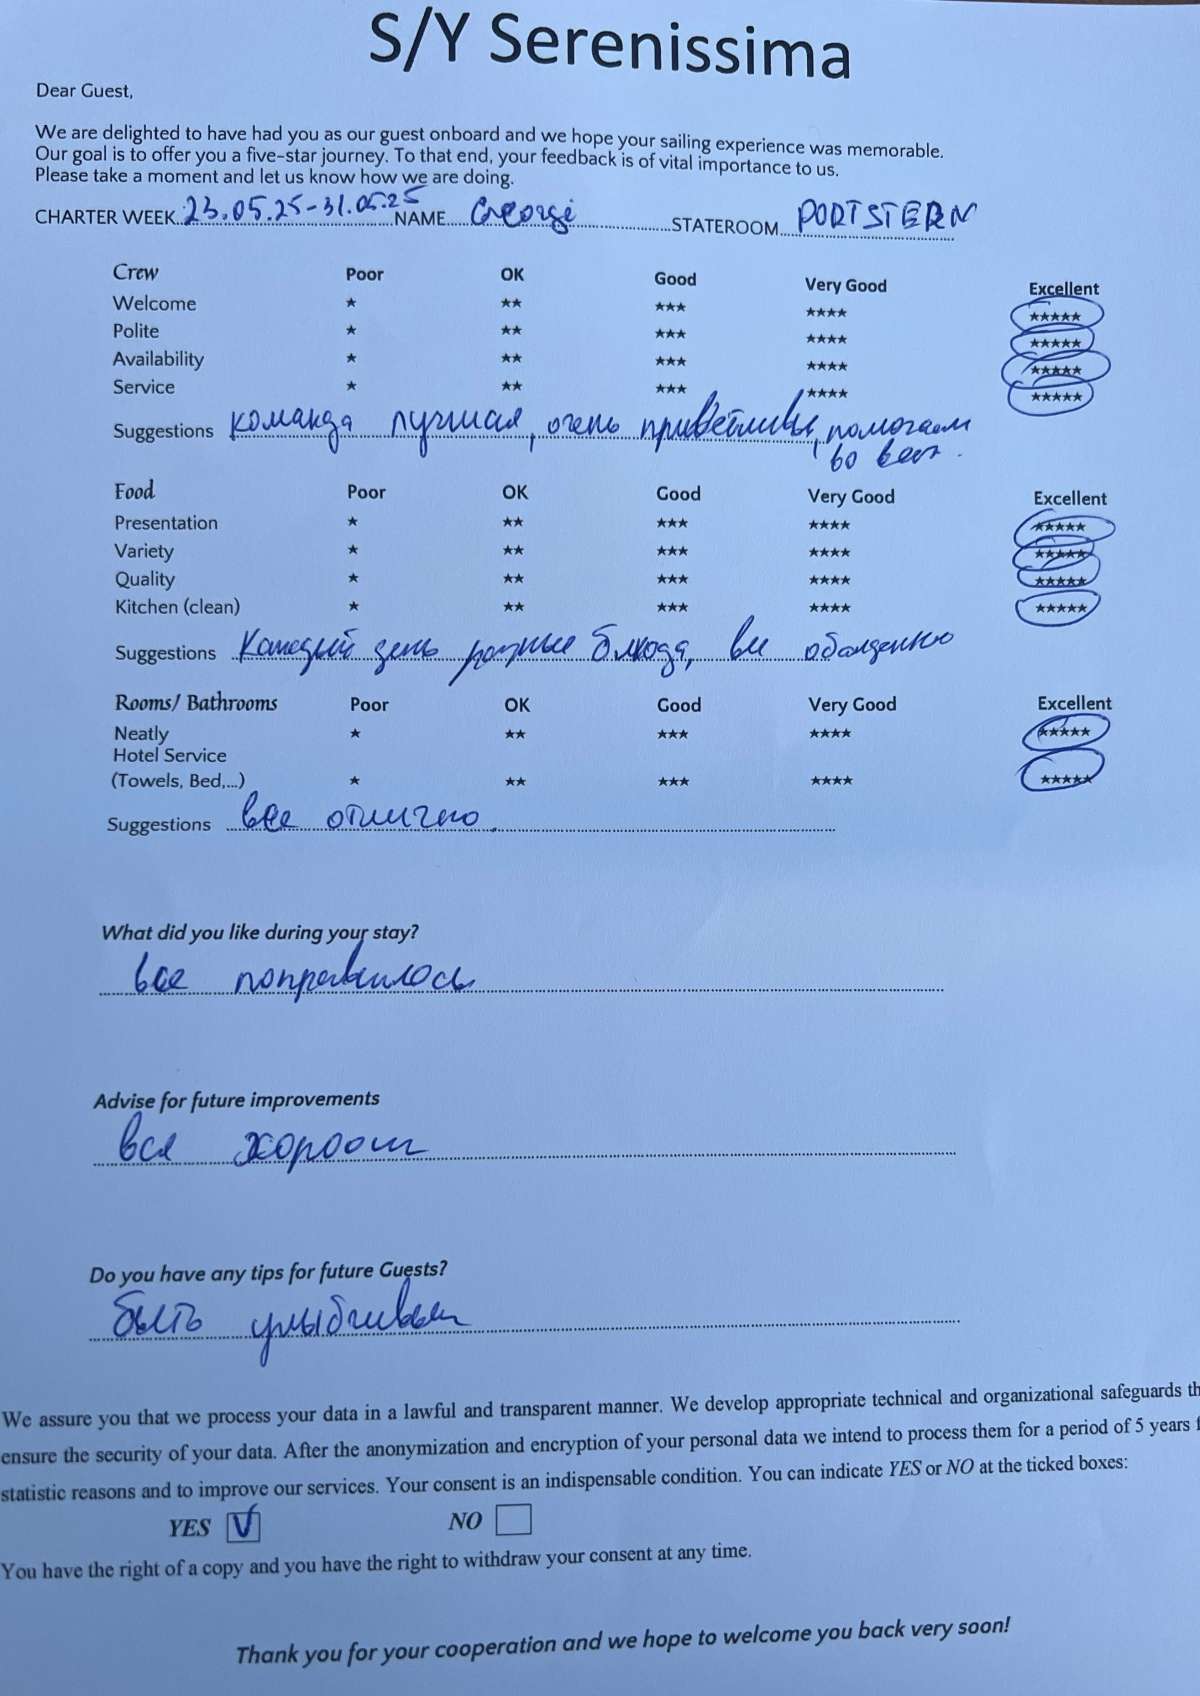 S/Y Serenissima
Dear Guest,
We are delighted to have had you as our guest onboard and we hope your sailing experience was memorable.
Our goal is to offer you a five-star journey. To that end, your feedback is of vital importance to us.
Please take a moment and let us know how we are doing.
CHARTER WEEK 23.05.25-31.05.25 NAME George STATEROOM PORT STERN
Crew Poor OK Good Very Good Excellent
Welcome ★ ★★ ★★★ ★★★★ ★★★★★
Polite ★ ★★ ★★★ ★★★★ ★★★★★
Availability ★ ★★ ★★★ ★★★★ ★★★★★
Service ★ ★★ ★★★ ★★★★ ★★★★★
Suggestions команда лучшая, очень приветливы, помогаем
во всем.
Food Poor OK Good Very Good Excellent
Presentation ★ ★★ ★★★ ★★★★ ★★★★★
Variety ★ ★★ ★★★ ★★★★ ★★★★★
Quality ★ ★★ ★★★ ★★★★ ★★★★★
Kitchen (clean) ★ ★★ ★★★ ★★★★ ★★★★★
Suggestions Каждый день разные блюда, все обалденно
Rooms/ Bathrooms Poor OK Good Very Good Excellent
Neatly ★ ★★ ★★★ ★★★★ ★★★★★
Hotel Service
(Towels, Bed,...) ★ ★★ ★★★ ★★★★ ★★★★★
Suggestions все отлично.
What did you like during your stay?
все понравилось
Advise for future improvements
все хорошо
Do you have any tips for future Guests?
быть улыбчивым
We assure you that we process your data in a lawful and transparent manner. We develop appropriate technical and organizational safeguards th
ensure the security of your data. After the anonymization and encryption of your personal data we intend to process them for a period of 5 years f
statistic reasons and to improve our services. Your consent is an indispensable condition. You can indicate YES or NO at the ticked boxes:
YES V NO
You have the right of a copy and you have the right to withdraw your consent at any time.
Thank you for your cooperation and we hope to welcome you back very soon!